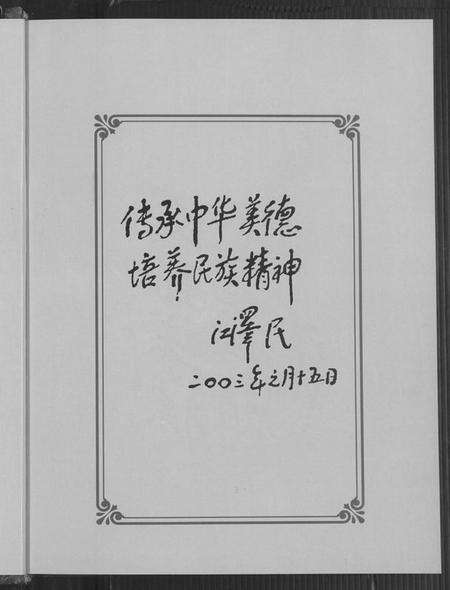 传承中华美德
培养民族精神
江泽民
二〇〇三年元月十五日